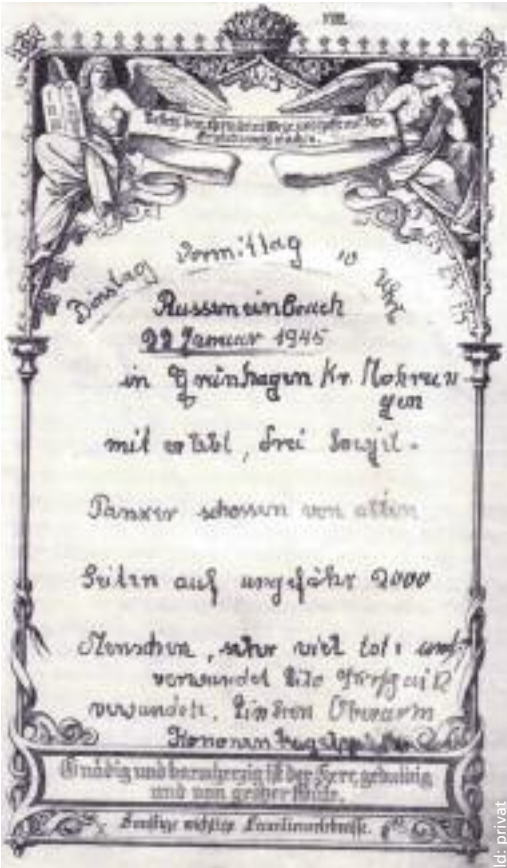 VIII.
Befiehl dem Herrn deine Wege und hoffe auf
Dinstag Vormittag 10 Uhr
Russeneinbruch
22 Januar 1945
in Grünhagen Kr. Mohrun-
gen
mit erlebt, drei Sowjet-
Panzer schossen von allen
Seiten auf ungefähr 2000
Menschen, sehr viel tote und
verwundet
verwundet, linken Oberarm
Gnädig und barmherzig ist der Herr, geduldig
und von großer Güte.
Sonstige wichtige Familienerlebnisse.
ld: privat